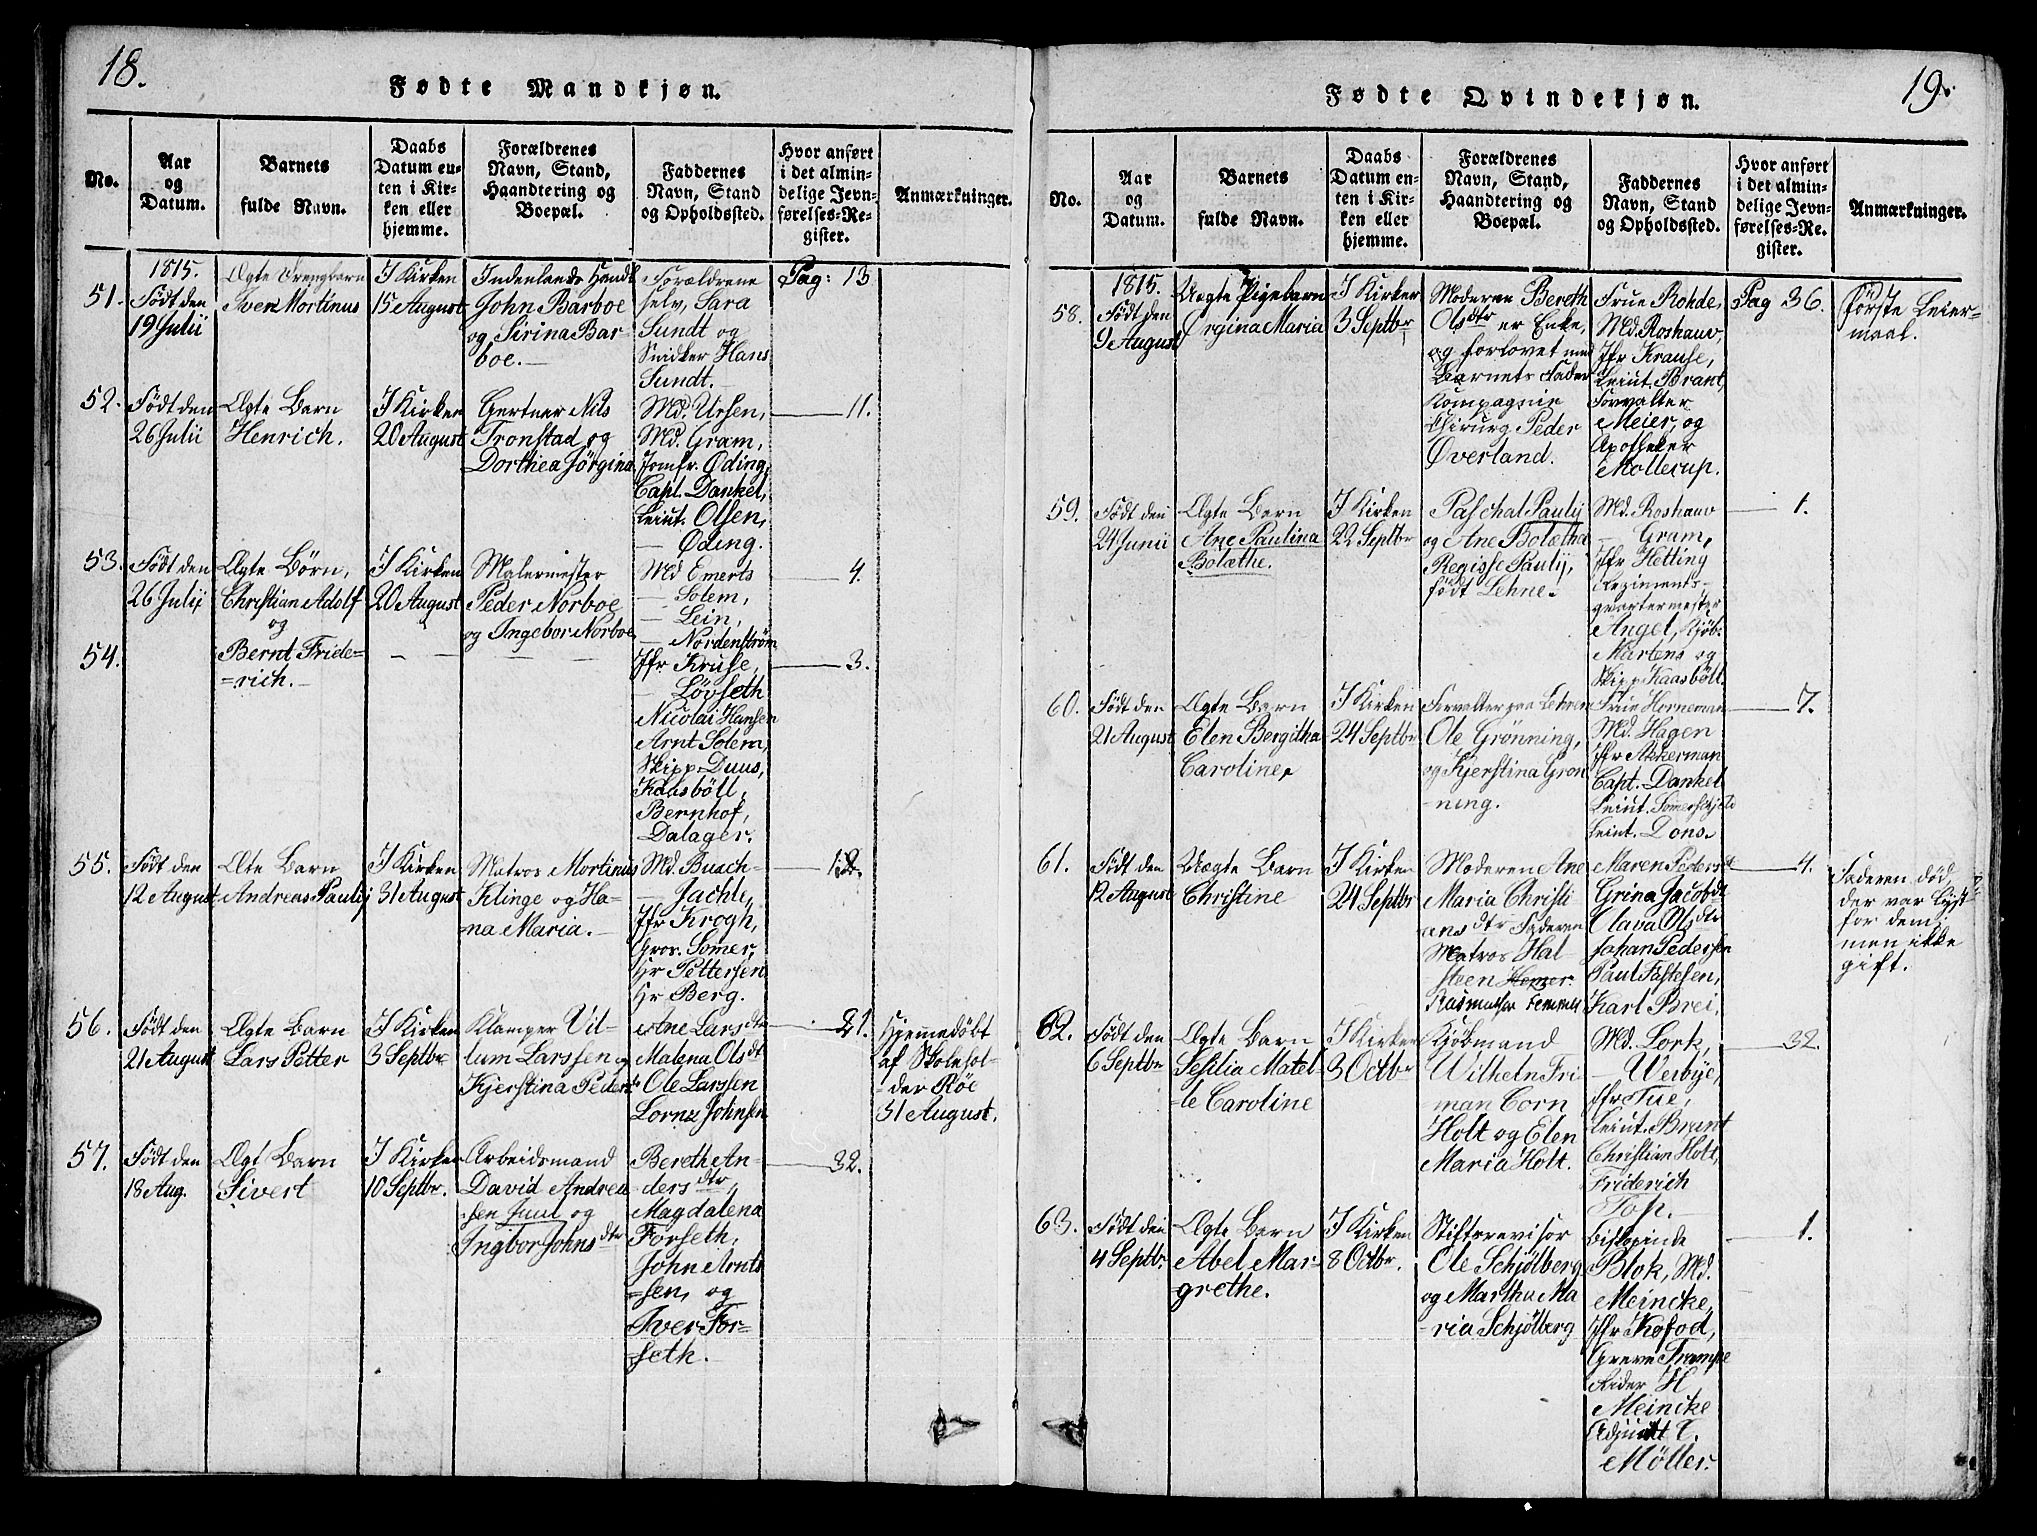 18.
Fødte Mandkjøn.
No.
Aar
og
Datum.
Barnets
fulde Navn.
Daabs
Datum en-
ten i Kir-
ken eller
hjemme.
Forældrenes
Navn, Stand,
Haandtering og
Boepæl.
Faddernes
Navn, Stand
og Opholdssted.
Hvor anført
i det almin-
delige Jevn-
førelses-Re-
gister.
Anmærkninger.
51.
1815.
Født den
19 Julii
Ægte Drengebarn
Iver Mortinus
I Kirken
15 August
Indenlands Handl
John Barboe
og Sirina Bar-
boe.
Forældrene
selv, Sara
Sundt og
Snidker Hans
Sundt.
Pag: 13
52.
Født den
26 Julii
Ægte Barn
Henrich.
I Kirken
20 August
Gertner Nils
Tronstad og
Dorthea Jörgina
Md. Ursen,
Md. Gram,
Jomfr. Øding,
Capt. Dankel,
Leiut. Olsen,
— Øding.
11.
53.
Født den
26 Julij
Ægte Børn,
Christian Adolf
og
I Kirken
20 August
Malermester
Peder Norboe
og Ingebor Norboe
Md Emerts
— Solem,
— Lein,
— Nordenström
4.
54.
Bernt Fride-
=rich.
— —
Jfr Kruse,
— Lövseth
Nicolai Hansen
Arnt Solem,
Skipp Duus,
Kaasböll,
Bernhof,
Dalager.
3.
55.
Født den
12 August
Æte Barn
Andreas Paulij
I Kirken
31 August
Matros Mortinus
Klinge og Ha-
na Maria.
Md. Busch
— Jachle,
Jfr Krogh,
Gros. Somer,
Hr Pettersen
Hr Berg.
12.
56.
Født den
21 August
Ægte Barn
Lars Petter
I Kirken
3 Septbr
Klamper Vil-
lum Larssen og
Kjerstina Pedersdtr
Ane Larsdtr
Malena Olsdt
Ole Larssen
Lornz Johnsen
21.
Hjemedöbt
af Skolehol-
der Røe
31 August.
57.
Født den
18 Aug.
Ægt Barn
Sivert
I Kirken
10 Septbr.
Arbeidsmand
David Andrea
sen Juul og
Ingbor Johnsdtr
Bereth An-
dersdtr,
Magdalena
Forseth,
John Arnts
=sen, og
Iver For=
seth.
32.
19.
Fødte Qvindekjøn.
No.
Aar
og
Datum.
Barnets
fulde Navn.
Daabs
Datum en-
ten i Kir-
ken eller
hjemme.
Forældrenes
Navn, Stand,
Haandtering og
Boepæl.
Faddernes
Navn, Stand
og Opholdssted.
Hvor anført
i det almin-
delige Jevn-
førelses-Re-
gister.
Anmærkninger.
58.
1815.
Født den
9 August
Uægte Pigebarn
Orgina Maria
I Kirker
3 Septbr
Moderen Bereth
Olsdtr er Enke,
og forlovet med
Barnets Fader
Kompagnie
Chirurg Peder
Øverland.
Frue Rohde,
Md. Roshauv,
Jfr Krause,
Leiut. Brant,
Forvalter
Meier, og
Apotheker
Mollerup.
Pag 36.
Første Leier-
maal.
59.
Født den
24 Junii
Ægte Barn
Ane Paulina
Bolæthe.
I Kirken
22 Septbr
Paschal Paulij
og Ane Bolætha
Regisse Paulij,
født Lehne.
Md. Roshauv
— Gram,
Jfr Hetting
Regiments-
qvartermester
Angel, Kjöb.
Martens og
Skipp Kaasböll.
1.
60.
Født den
21 August
Ægte Barn
Elen Bergitha
Caroline,
I Kirken
24 Septbr
Forvalter paa Lehren
Ole Grønning,
og Kjerstina Gron
-ning.
Frue Horneman
Md. Hagen
Jfr Akkerman
Capt. Dankel
Leiut. Somerschjeld
Leiut. Dons.
7.
61.
Født den
12 August
Uægte Barn
Christine
I Kirken
24 Septbr
Moderen Ane
Maria Christi
ansdtr Faderen
Matros Hal
steen
Rasmussen Femmer
Maren Pedersdt
Grina Jacobdt
Olava Olsdtr
Johan Pedersen
Paul Fastesen,
Karl Brei.
4.
Faderen död,
der var lyst
for dem,
men ikke
gift.
62.
Født den
6 Septbr
Ægte Barn
Sesilia Matel-
le Caroline
I Kirken
3 Octbr
Kjöbmand
Wilhelm Fri
man Corn
Holt og Elen
Maria Holt.
Md. Lork,
— Weibye,
Jfr Tue,
Leiut. Brant
Christian Holt,
Friderich
Top.
32.
63.
Født den
4 Septbr.
Ægte Barn
Abel Mar-
grethe.
I Kirken
8 Octbr.
Stiftsrevisor
Ole Schjölberg
og Martha Ma
-ria Schjölberg
Bispeinde
Blok, Md.
Meincke,
Jfr Kofod,
Greve Trampe
Rider H
Meincke
Adjunkt C.
Möller.
1.